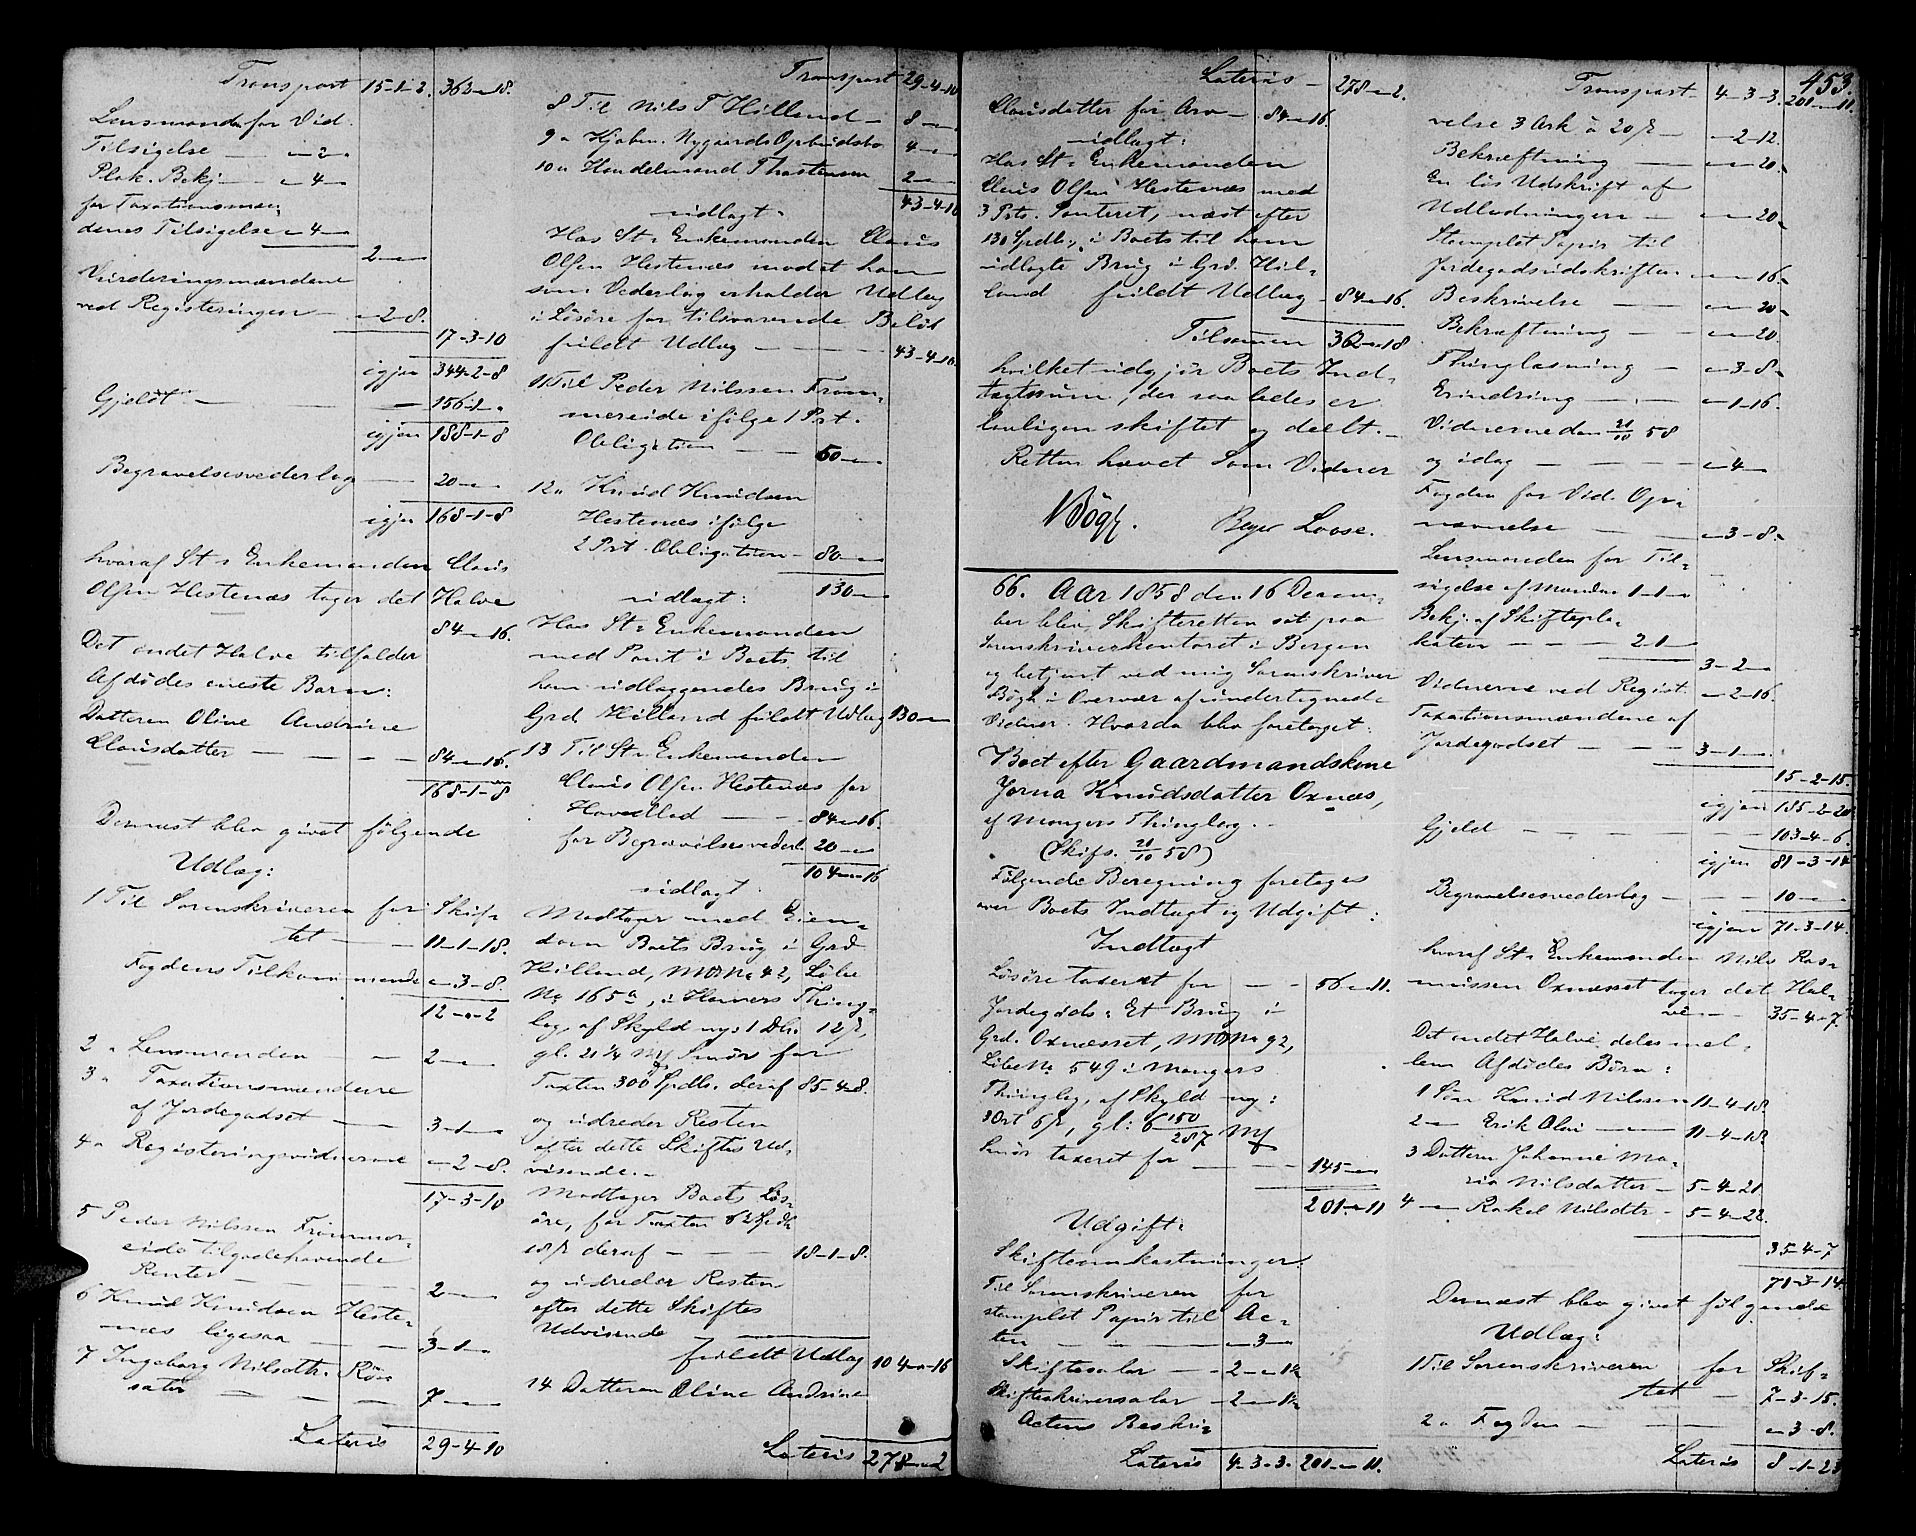 Transport 15-1-2. 362-"-18.
Lensmanden for Vid.
Tilsigelse — "-2-"
Plak. Bekj — "-4-"
for Taxationsmæn-
denes Tilsigelse "-4-"
2-"-"
Vurderingsmændene
ved Registeringen — "-2-8.
17-3-10
igjen 344-2-8
Gjeldt — — 156-1-"
igjen 188-1-8
Begravelsesvederlag — 20-"-"
igjen 168-1-8
hvoraf St: Enkemanden Claus
Olsen Hestenæs tager det Halve
84-"-16.
Det andet Halve tilfalder
Afdødes eneste Barn:
Datteren Oline Andrine
Clausdatter — — — 84-"-16.
168-1-8
Dernæst blev givet følgende
Udlæg:
1 Til Sorenskriveren for Skif-
tet — — 11-1-18.
Fogdens Tilkommende "-3-8.
12-"-2
2 " Lensmanden — 2-"-"
3 " Taxationsmændene
af Jordegodset — 3-1-"
4 " Registeringsvidnerne "-2-8.
17-3-10
5 Peder Nilssen Frommer-
eide tilgodehavende
Renter — — 2-"-"
6 Knud Knudsen Heste-
næs ligesaa — 3-1-"
7 Ingeborg Nilsdtr. Røs-
sæter — — — 7-"-"
Lateris 29-4-10
Transport 29-4-10
8 Til Nils T Hilland — 8-"-"
9 " Kjøbm. Nygaards Opbudsbo 4-"-"
10 " Handelsmand Thostensen 2-"-"
43-4-10
udlagt.
Hos St: Enkemanden Claus
Olsen Hestenæs imodat han
som Vederlag erholder Udlæg
i Løsøre for tilsvarende Beløb
fuldt Udlæg — — — 43-4-10.
11 Til Peder Nilssen From-
mereide ifølge 1 Prt.
Obligation — — 50-"-"
12 " Knud Knudsen
Hestenæs ifølge
2 Prt. Obligation — 80-"-"
udlagt: 130-"-"
Hos St: Enkemanden
med Pant i Boets til
ham udlæggendes Brug i
Grd Hilland fuldt Udlæg 130-"-"
13 Til St: Enkemanden
Claus Olsen Hestenæs for
Hovedlod — — 84-"-16.
for Begravelsesvederl. 20-"-"
104-"-16
udlagt.
Modtager med Eien-
dom Boets Brug i Grd
Hilland, M№ 42, Løbe
№ 165a, i Hammers Thing-
lag, af Skyld ny: 1 Dlr. 12 ß,
gl. 21 1/4 Mk Smør for
Taxten 300 Spdlr. deraf 85-4-8.
og udreder Resten
efter dette Skiftes Ud-
visende. —
Modtager Boets Løs-
øre, for Taxten 62 Spdlr
18 ß deraf — — 18-1-8.
og udreder Resten
efter dette Skiftes
Udvisende
fuldt Udlæg 104-"-16
14 Datteren Oline Andrine
Lateris 278-"-2
453.
Lateris — 278-"-2.
Clausdatter for Arv — 84-"-16.
udlagt:
Hos St: Enkemanden
Claus Olsen Hestenæs med
3 Prts. Panteret, næst efter
130 Spdlr, i Boets til ham
udlagte Brug i Grd. Hil-
land fuldt Udlæg — 84-"-16.
Tilsammen 362-"-18
hvilket udgjør Boets Ind-
tægtssum, der saaledes er
lovligen skiftet og deelt. —
Retten hævet Som Vidner
Bøgh. Beyer Loose.
66. Aar 1858 den 16 Decem-
ber blev Skifteretten sat paa
Sorenskriverkontoret i Bergen
og betjent ved mig Sorenskriver
Bøgh i Overvær af undertegnede
Vidner. Hvorda blev foretaget:
Boet efter Gaardmandskone
Jorna Knudsdatter Oxnæs,
af Mangers Thinglag. —
(Skifs. 21/10 58)
Følgende Beregning foretoges
over Boets Indtægt og Udgift:
Indtægt
Løsøre taxeret for — — 56-"-11.
Jordegods: Et Brug i
Grd. Oxnæsset, M№ 92,
Løbe№ 549 i Mangers
Thinglag, af Skyld ny:
3 Ort 6 ß, gl: 6 150/287 Mk
Smør taxeret for — — 145-"-"
201-"-11
Udgift:
Skifteomkostninger
Til Sorenskriveren for
stemplet Papir til Ac-
ten — — — "-3-"
Skiftesalær — 2-"-1½
Skifteskriversalær — 2-"-1½
Actens Beskri-
Lateris 4-3-3. 201-"-11.
Transport 4-3-3. 201-"-11.
velse 3 Ark à 20 ß — "-2-12.
Bekræftning — "-"-20.
En løs Udskrift af
Udlodningen — "-"-20.
Stemplet Papir til
Jordegodsudskriften "-"-16.
Beskrivelse — "-"-20.
Bekræftning — "-"-20.
Thinglæsning — "-3-8.
Erindring — "-1-16.
Vidnerne den 21/10 58
og idag — — — "-4-"
Fogden for Vid. Op-
nævnelse — "-3-8.
Lensmanden for Til-
sigelse af Mændene 1-1-"
Bekj. af Skiftepla-
katen — — — 2-1-"
3-2-"
Vidnerne ved Regist. "-2-16.
Taxationsmændene af
Jordegodset — — 3-1-"
15-2-15.
igjen 185-2-20
Gjeld — — — 103-4-6.
igjen 81-3-14
Begravelsesvederlag — — 10-"-"
igjen 71-3-14.
hvoraf St: Enkemanden Nils Ras-
mussen Oxnæsset tager det Hal-
ve — 35-4-7.
Det andet Halve deles mel-
lem Afdødes Børn:
1 Søn Knud Nilssen 11-4-18.
2 " Erik Olai — 11-4-18.
3 Datteren Johanne Ma-
ria Nilsdatter — 5-4-21
4 " Rakel Nilsdtr — 5-4-22.
35-4-7
71-3-14.
Dernæst blev givet følgende
Udlæg:
1 Til Sorenskriveren for Skif-
tet — 7-3-15.
2 " Fogden — — — "-3-8.
Lateris 8-1-23